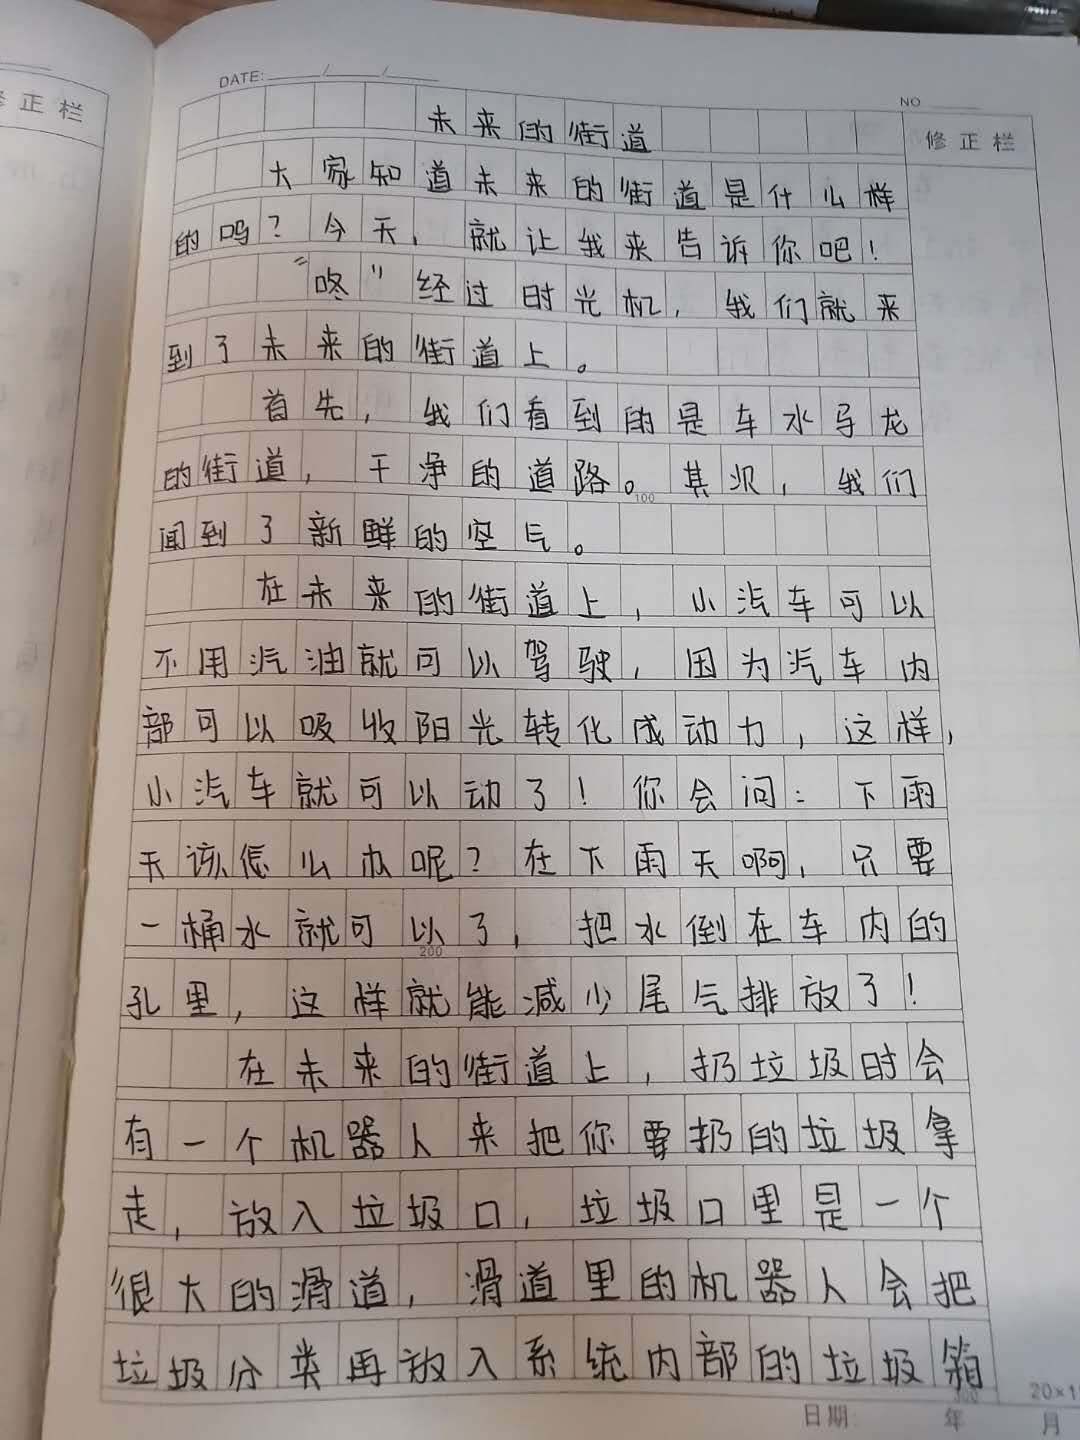 修正栏
DATE: / /
NO
未来的街道
修正栏
大家知道未来的街道是什么样
的吗？今天，就让我来告诉你吧！
“咚”经过时光机，我们就来
到了未来的街道上。
首先，我们看到的是车水马龙
的街道，干净的道路。其次，我们
100
闻到了新鲜的空气。
在未来的街道上，小汽车可以
不用汽油就可以驾驶，因为汽车内
部可以吸收阳光转化成动力，这样，
小汽车就可以动了！你会问：下雨
天该怎么办呢？在下雨天啊，只要
一桶水就可以了，把水倒在车内的
200
孔里，这样就能减少尾气排放了！
在未来的街道上，扔垃圾时会
有一个机器人来把你要扔的垃圾拿
走，放入垃圾口，垃圾口里是一个
很大的滑道，滑道里的机器人会把
垃圾分类再放入系统内部的垃圾箱
300
日期: 年 月